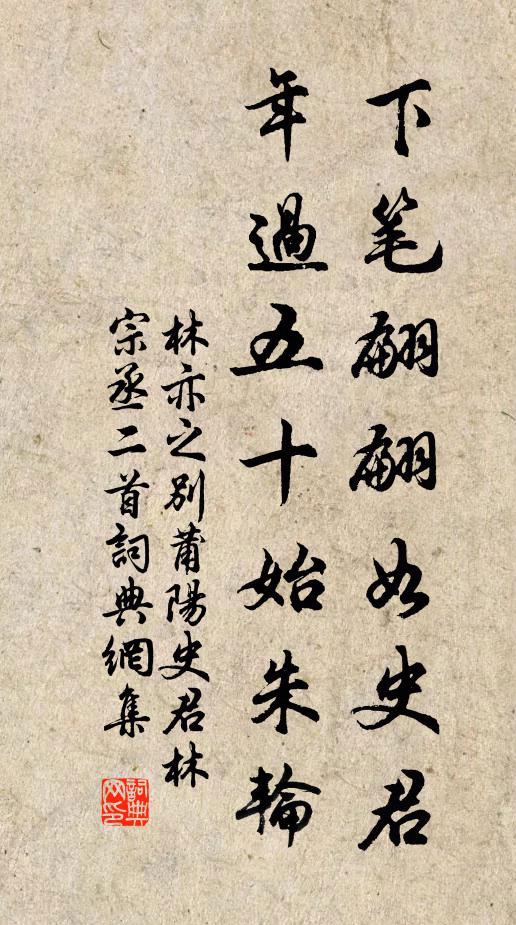 下笔翩翩如史君
年過五十始朱輪
林亦之別莆陽史君林
宗丞二首詞典網集
詞典网印